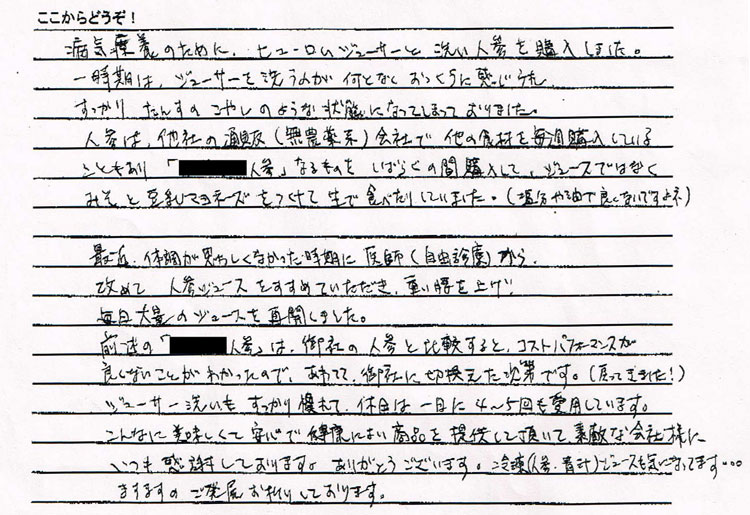 ここからどうぞ！
病気療養のために、ヒューロムジューサーと洗い人参を購入しました。
一時期は、ジューサーを洗うのが何となくおっくうに感じられ
すっかりたんすのこやしのような状態になってしまっておりました。
人参は、他社の通販（無農薬系）会社で他の食材を毎週購入している
こともあり「人参」なるものをしばらくの間購入して、ジュースではなく
みそと豆乳マヨネーズをつけて生で食べたりしていました。（塩分や油で良くないですよネ）
最近、体調が思わしくなかった時期に医師（自由診療）から、
改めて人参ジュースをすすめていただき、重い腰を上げ
毎日大量のジュースを再開しました。
前述の「人参」は、御社の人参と比較すると、コストパフォーマンスが
良くないことがわかったので、あわてて、御社に切換えた次第です。（戻ってきました！）
ジューサー洗いもすっかり慣れて、休日は一日に4〜5回も愛用しています。
こんなに美味しくて安心で健康によい商品を提供して頂いて素敵な会社様に
いつも感謝しております。ありがとうございます。冷凍（人参・青汁）ジュースも気になってます…
ますますのご発展お祈りしております。